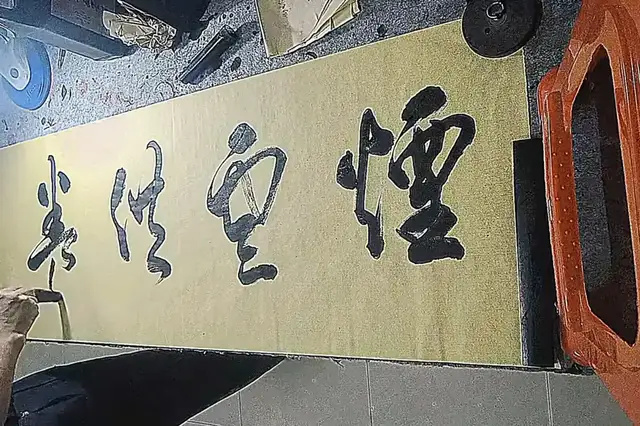 煙雲供養